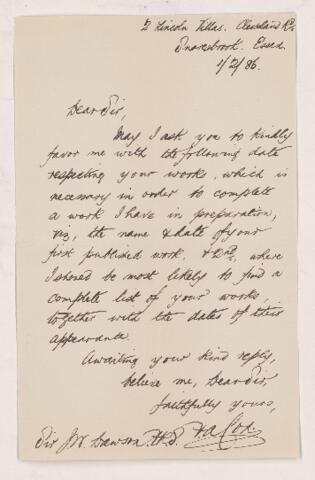 2 Lincoln Villas. Cleveland Rd.
Snaresbrook. Essex
1/2/86.
Dear Sir,
May I ask you to kindly
favor me with the following data
respecting your works, which is
necessary in order to complete
a work I have in preparation,
viz, the name & date of your
first published work. & 2nd, where
I should be most likely to find a
complete list of your works,
together with the dates of their
appearance.
Awaiting your kind reply,
believe me, Dear Sir
faithfully yours,
Sir J.W. Dawson. Cox.